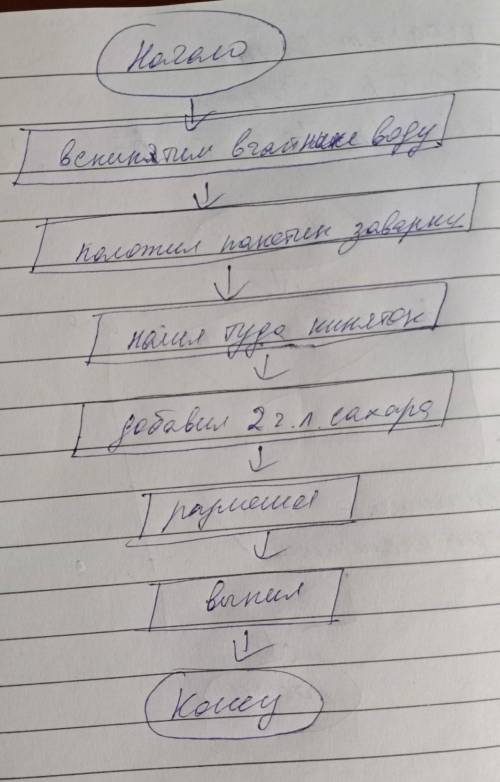 Начало
вскипятим в чайнике воду
положил пакетик заварки
налил туда кипяток
добавил 2 ч.л. сахара
размешал
выпил
Конец